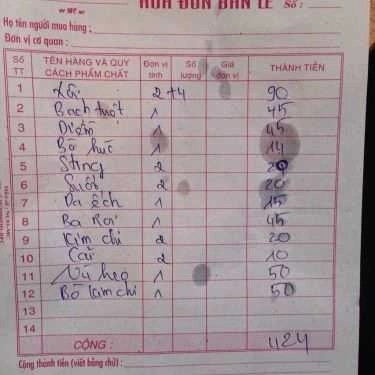 HÓA ĐƠN BÁN LẺ Số :
Họ tên người mua hàng :
Đơn vị cơ quan :
Số TT TÊN HÀNG VÀ QUY CÁCH PHẨM CHẤT Đơn vị tính Số lượng Giá đơn vị THÀNH TIỀN
1 Xôi 2+4 90
2 Bạch tuột 1 45
3 1 45
4 Bò húc 1 14
5 Sting 2 20
6 Suối 2 20
7 Da ếch 1 15
8 Ba Rọi 1 45
9 Kim chi 2 20
10 Cải 2 10
11 Vú heo 1 50
12 Bò Kim chi 1 50
13
14
CỘNG : 424
Cộng thành tiền (viết bằng chữ) :